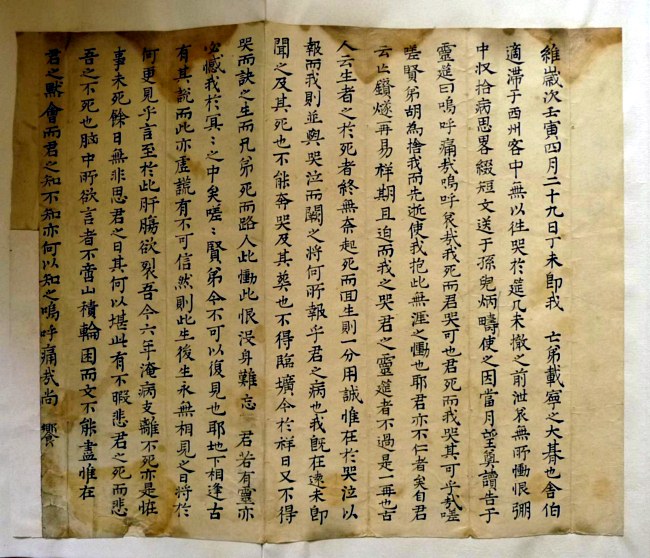 維歲次壬寅四月二十九日丁未卽我 亡弟載寧之大朞也舍伯
適滯于西州客中無以往哭於筵几未撤之前泄哀無所慟恨弸
中收拾病思畧綴短文送于孫兒炳疇使之因當月望奠讀告于
靈筵曰嗚呼痛哉嗚呼哀哉我死而君哭可也君死而我哭其可乎哉嗟
嗟賢弟胡爲捨我而先逝使我抱此無涯之慟也耶君亦不仁者矣自君
云亡鑽燧再易祥期且迫而我之哭君之靈筵者不過是一再也古
人云生者之於死者終無奈起死而回生則一分用誠惟在於哭泣以
報而我則並與哭泣而闕之將何所報乎君之病也我旣在遠未卽
聞之及其死也不能奔哭及其葬也不得臨壙今於祥日又不得
哭而訣之生而兄弟死而路人此慟此恨沒身難忘 君若有靈亦
必憾我於冥〻之中矣嗟〻賢弟今不可以復見也耶地下相逢古
有其說而此亦虛謊有不可信然則此生後生永無相見之日將於
何更見乎言至於此肝膓欲裂吾今六年淹病支離不死亦是恠
事未死餘日無非思君之日其何以堪此有不暇悲君之死而悲
吾之不死也胸中所欲言者不啻山積輪囷而文不能盡惟在
君之默會而君之知不知亦何以知之嗚呼痛哉尚 饗